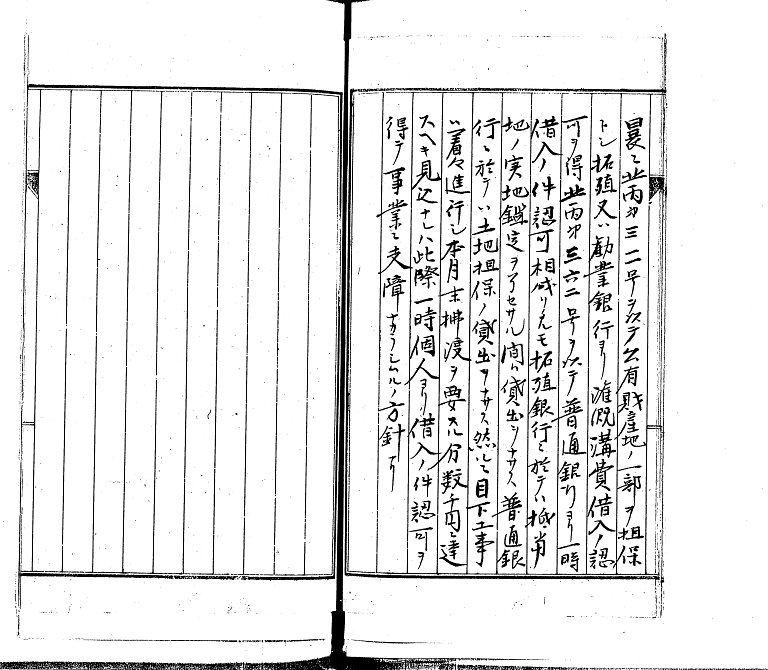 曩ニ北丙第三二一号ヲ以テ公有財産地ノ一部ヲ担保
トシ拓殖又ハ勧業銀行ヨリ灌漑溝費借入ノ認
可ヲ得北丙第三六二号ヲ以テ普通銀行ヨリ一時
借入ノ件認可相成リタルモ拓殖銀行ニ於テハ抵当
地ノ実地鑑定ヲアセサル間ハ貸出ヲナサス普通銀
行ニ於テハ土地担保ノ貸出ヲナサス然ルニ目下工事
ハ着々進行シ本月末拂渡ヲ要スル分数千円ニ達
スヘキ見込ナレハ此際一時個人ヨリ借入ノ件認可ヲ
得テ事業ニ支障ナカラシムルノ方針ナリ